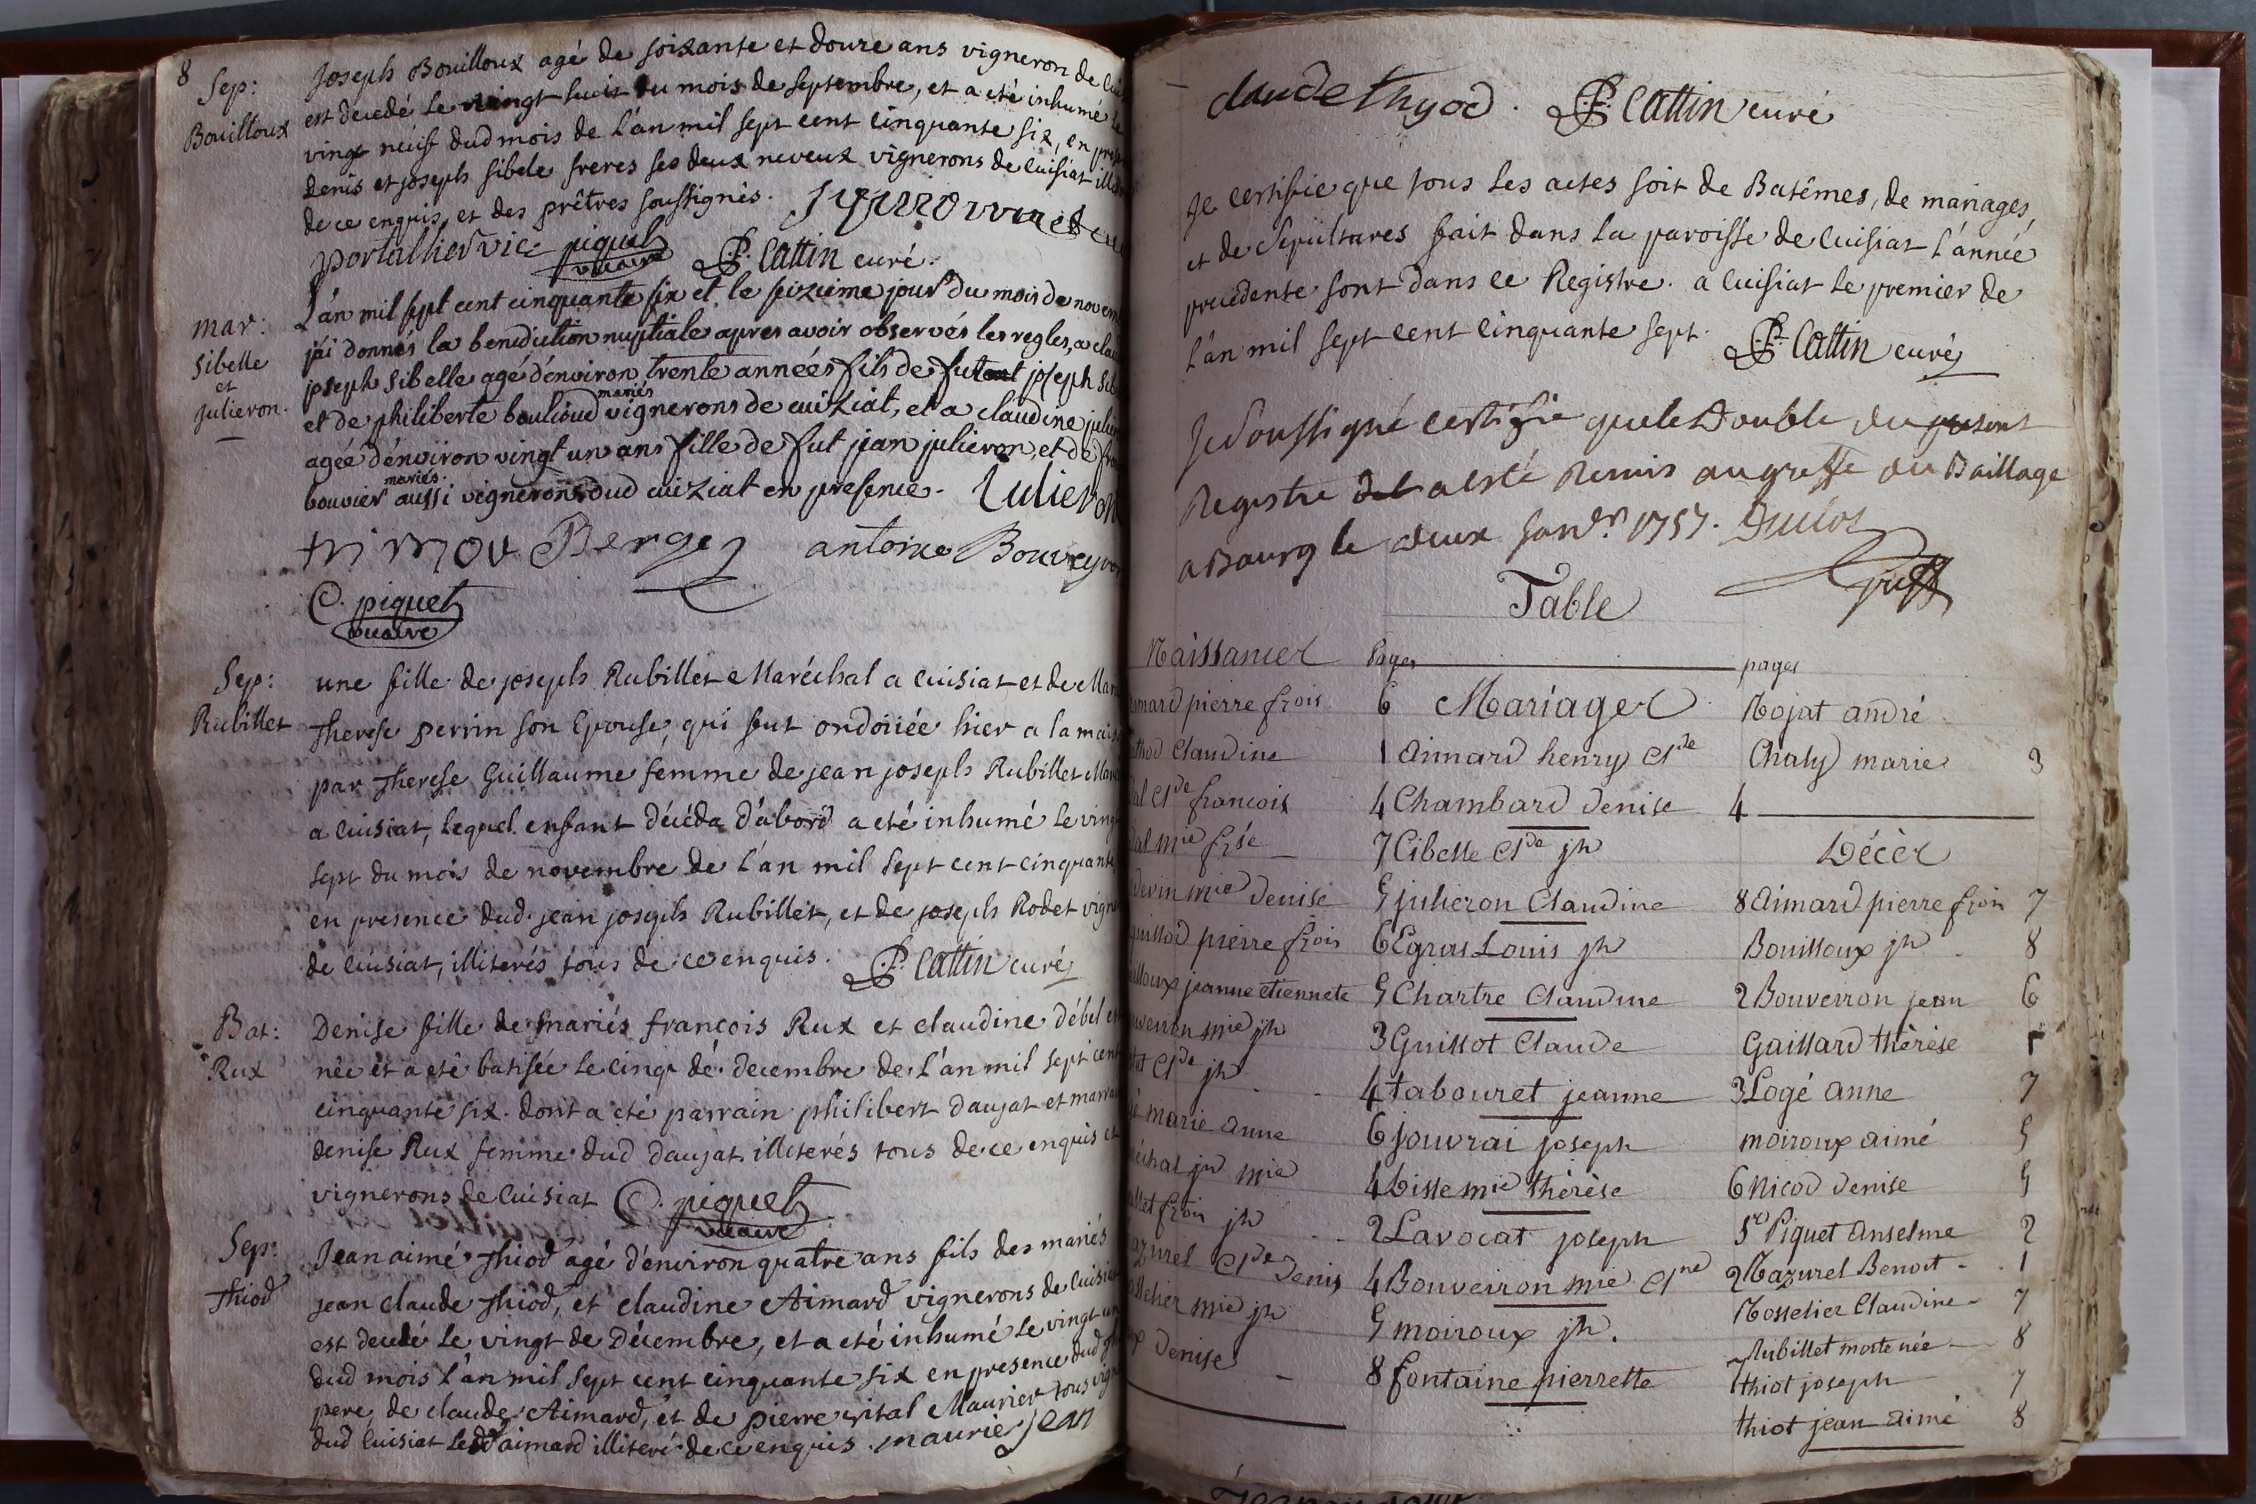 8
Sep:
Bouilloux
Joseph Bouilloux agé de soixante et douze ans vigneron de
est decedé le vingt huit du mois de septembre, et a eté inhumé le
vingt neuf dud mois de l'an mil sept cent cinquante six, en
denis et joseph sibele freres ses deux neveux vignerons de cuisiat
de ce enquis, et des prêtres soussignés.
portallier vic piquet vicaire P. Cattin curé.
mar:
Sibelle
et
Julieron.
L'an mil sept cent cinquante six et le seizieme jour du mois de
j'ai donnés la benediction nuptiale apres avoir observés les regles, a
joseph Sibelle agé d'énviron trente années fils de fut joseph
et de philiberte boulioud mariés vignerons de cuiziat, et a claudine
agée d'énviron vingt un ans fille de fut jean julieron, et de
bouvier mariés aussi vignerons dud cuiziat en presence. Julieron
Berger antoine Bouveyron
C. piquet
vicaire
Sep:
Rubillet
une fille de joseph Rubillet Maréchal a cuisiat et de
Therese perrin son Epouse, qui fut ondoiiée hier a la
par Therese Guillaume femme de jean joseph Rubillet
a cuisiat, lequel enfant décéda d'abord a eté inhumé le
sept du mois de novembre de l'an mil sept cent cinquante
en presence dud. jean joseph Rubillet, et de joseph Rodet
de cuisiat, illiterés tous de ce enquis. P. Cattin curé
Bat:
Rux
Denise fille de mariés françois Rux et claudine débel
née et a eté batisée le cinq de decembre de l'an mil sept cent
cinquante six. dont a eté parrain philibert daujat et
denise Rux femme dud daujat illiterés tous de ce enquis
vignerons de Cuisiat C. piquet
vicaire
Sep:
Thiod
Jean aimé Thiod agé d'énviron quatre ans fils des mariés
jean claude Thiod, et claudine Aimard vignerons de
est decedé le vingt de Décembre, et a eté inhumé le vingt
dud mois l'an mil sept cent cinquante six en presence dud
pere, de claude Aimard, et de pierre vital Maurier tous
dud Cuisiat led aimard illiteré de ce enquis. maurier jean
claude thyod. P. Cattin curé
Je certifie que tous les actes soit de Batêmes, de mariages,
et de Sepultures fait dans la paroisse de Cuisiat l'année
precedente sont dans ce Registre. a Cuisiat le premier de
l'an mil sept cent cinquante sept. P. Cattin curé
Je Soussigné certifie que le Double du present
Registre a esté Remis au greffe du Baillage
a Bourg le deux Janv.r 1757.
Greff
Table
Naissances Pages pages
pierre frois 6 Mariages Nojat andré
Claudine 1 aimard henry Cl de Chaly marie 3
Cl de françois 4 Chambard denise 4
mie 7 Cibelle Cl de jh Décès
mie denise 5 julieron Claudine 8 aimard pierre frois 7
pierre frois 6 Egras Louis jh Bouilloux jh 8
jeanne etiennete 5 Chartre Claudine 2 Bouveiron jean 6
mie jh 3 Guillot Claude Gaillard thérèse 5
Cl de jh 4 tabouret jeanne 3 Logé anne 7
marie anne 6 jouvrai joseph moiroux aimé 5
jh mie 4 mie thérèse 6 Nicod denise 5
frois jh 2 Lavocat joseph Sr Piquet Anselme 2
Cl de denis 4 Bouveiron mie Cl ne 2 Mazurel Benoit 1
mie jh 5 moiroux jh. Claudine 7
denise 8 fontaine pierrette Rubillet morte née 8
thiot joseph 7
thiot jean aimé 8